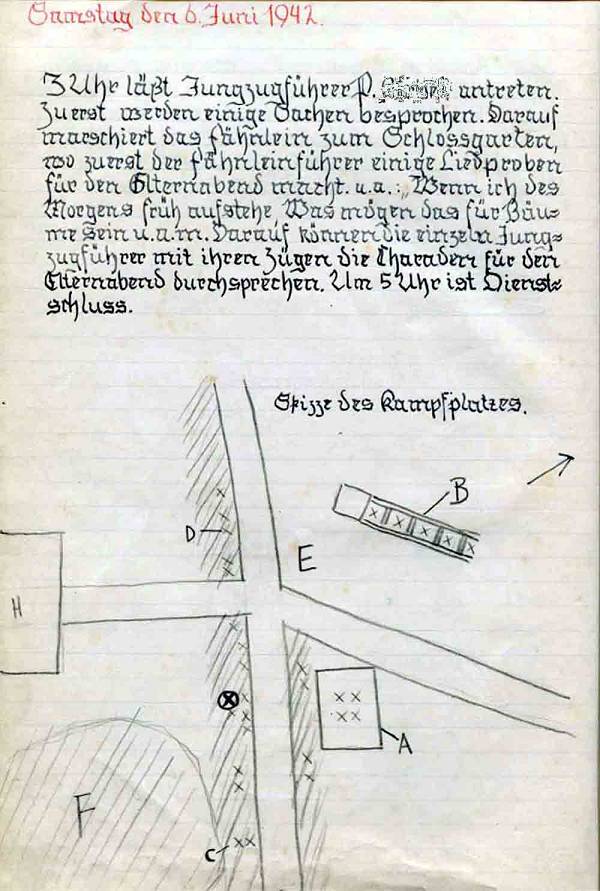 Samstag den 6. Juni 1942.
3 Uhr läßt Jungzugführer P. antreten.
Zuerst werden einige Sachen besprochen. Darauf
marschiert das Fähnlein zum Schlossgarten,
wo zuerst der Fähnleinführer einige Liedproben
für den Elternabend macht. u.a.: „Wenn ich des
Morgens früh aufstehe, Was mögen das für Bäu-
me sein u.a.m. Darauf können die einzeln Jung-
zugführer mit ihren Zügen die Charaden für den
Elternabend durchsprechen. Um 5 Uhr ist Dienst-
schluss.
Skizze des Kampfplatzes.
B
D
E
H
A
F
C